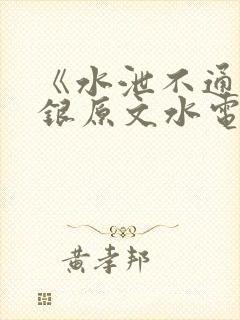 《水泄不通
银原文水電
黄孝邦